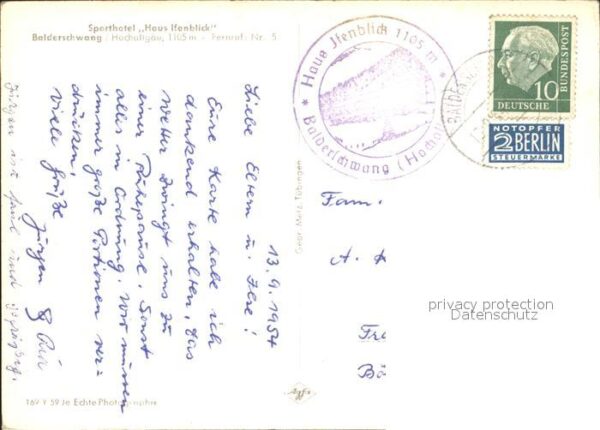 Sporthotel „Haus Ifenblick"
Balderschwang / Hochallgäu, 1105 m - Fernruf: Nr. 5
13.4.1954
Liebe Eltern u. Ilse!
Eure Karte habe ich
dankend erhalten, das
Wetter zwingt uns zu
einer Ruhepause. Sonst
alles in Ordnung. Wir müssen
immer große Portionen ver=
drücken.
Viele Grüße
Jürgen &
Jürgen ist faul und
169 Y 59 Je Echte Photographie
Gebr. Metz, Tübingen
Agfa
* Haus Ifenblick 1105 m *
Balderschwang (Hochal
BALDERSCHW
10
DEUTSCHE
BUNDESPOST
NOTOPFER
2 BERLIN
STEUERMARKE
Fam.
A.
Fre
Bö
privacy protection
Datenschutz